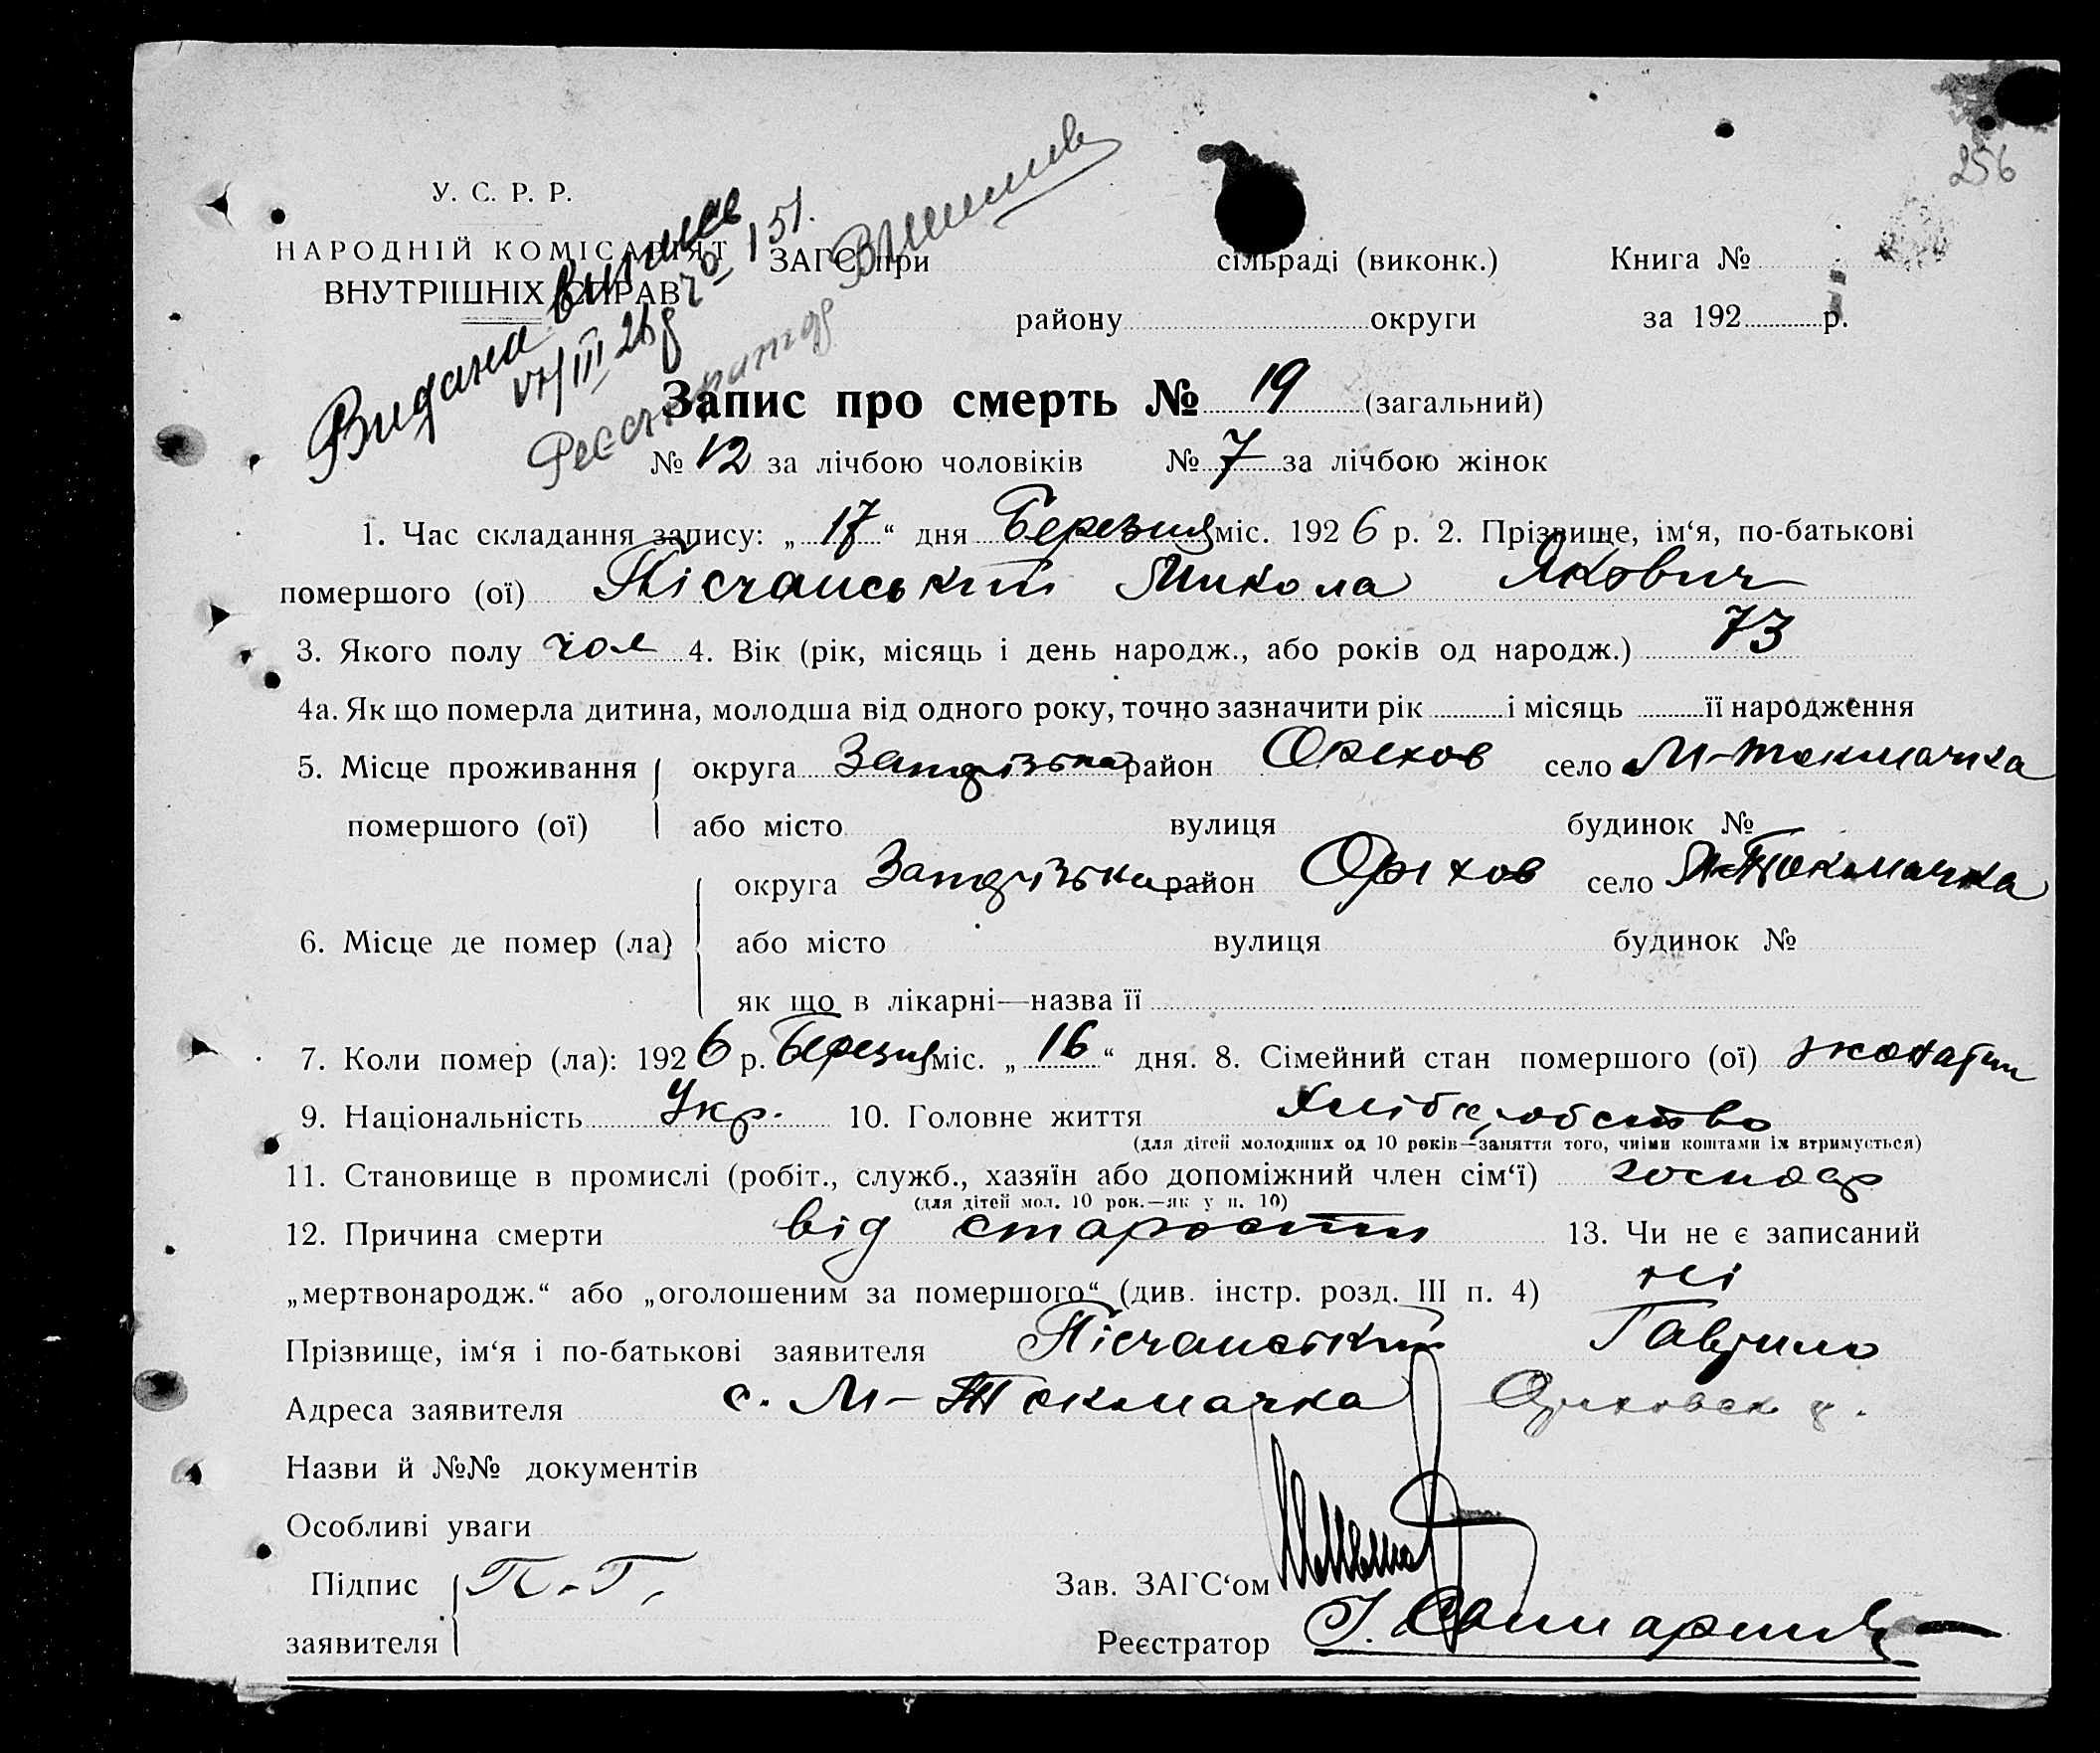 256
У. С. Р. Р.
НАРОДНІЙ КОМІСАРІЯТ
ВНУТРІШНІХ СПРАВ
Видана випись
VII/III 26 р № 151.
Реєстратор
ЗАГС при сільраді (виконк.) Книга №
району округи за 192 р.
Запис про смерть № 19 (загальний)
№ 12 за лічбою чоловіків № 7 за лічбою жінок
1. Час складання запису: „17“ дня Березня міс. 1926 р. 2. Прізвище, ім‘я, по-батькові
помершого (ої) Пісчанський Микола Якович
3. Якого полу чол 4. Вік (рік, місяць і день народж., або років од народж.) 73
4а. Як що померла дитина, молодша від одного року, точно зазначити рік і місяць її народження
5. Місце проживання помершого (ої) округа Запорізька район Орехов село М-Токмачка
або місто вулиця будинок №
6. Місце де помер (ла) округа Запорізька район Оріхов село М-Токмачка
або місто вулиця будинок №
як що в лікарні—назва її
7. Коли помер (ла): 1926 р. Березня міс. „16“ дня. 8. Сімейний стан помершого (ої) жонатий
9. Національність Укр. 10. Головне життя Хліборобство
(для дітей молодших од 10 років—заняття того, чиїми коштами їх втримується)
11. Становище в промислі (робіт., служб., хазяїн або допоміжний член сім‘ї) господар
(для дітей мол. 10 рок.—як у п. 10)
12. Причина смерти від старости 13. Чи не є записаний
„мертвонародж.“ або „оголошеним за помершого“ (див. інстр. розд. III п. 4) ні
Прізвище, ім‘я і по-батькові заявителя Пісчанський Гаврило
Адреса заявителя с. М-Токмачка Ориховск р.
Назви й №№ документів
Особливі уваги
Підпис заявителя П.-Г.
Зав. ЗАГС‘ом
Реєстратор